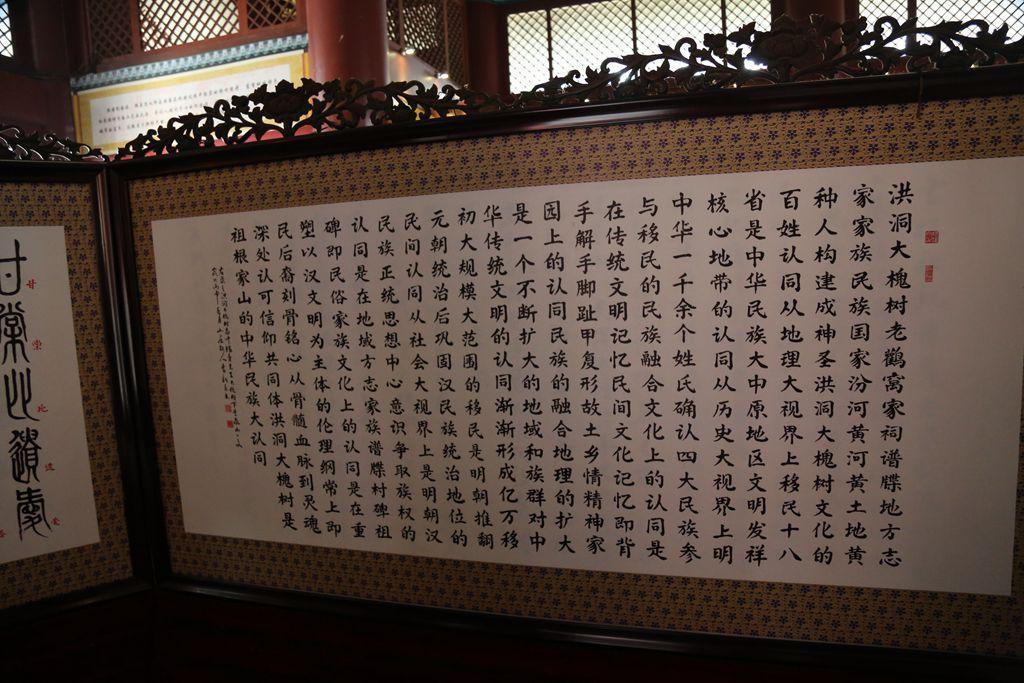 洪洞大槐树老鹳窝家祠谱牒地方志
家家族民族国家汾河黄河黄土地黄
种人构建成神圣洪洞大槐树文化的
百姓认同从地理大视界上移民十八
省是中华民族大中原地区文明发祥
核心地带的认同从历史大视界上明
中华一千余个姓氏确认四大民族参
与移民的民族融合文化上的认同是
在传统文明记忆民间文化记忆即背
手解手脚趾甲复形故土乡情精神家
园上的认同民族的融合地理的扩大
是一个不断扩大的地域和族群对中
华传统文明的认同渐渐形成亿万移
初大规模大范围的移民是明朝推翻
元朝统治后巩固汉民族统治地位的
民间认同从社会大视界上是明朝汉
民族正统思想中心意识争取族权的
认同是在地域方志家族谱牒村碑祖
碑即民俗家族文化上的认同是在重
塑以汉文明为主体的伦理纲常上即
民后裔刻骨铭心从骨髓血脉到灵魂
深处认可信仰共同体洪洞大槐树是
祖根家山的中华民族大认同
甘棠
甘
棠
遗
爱